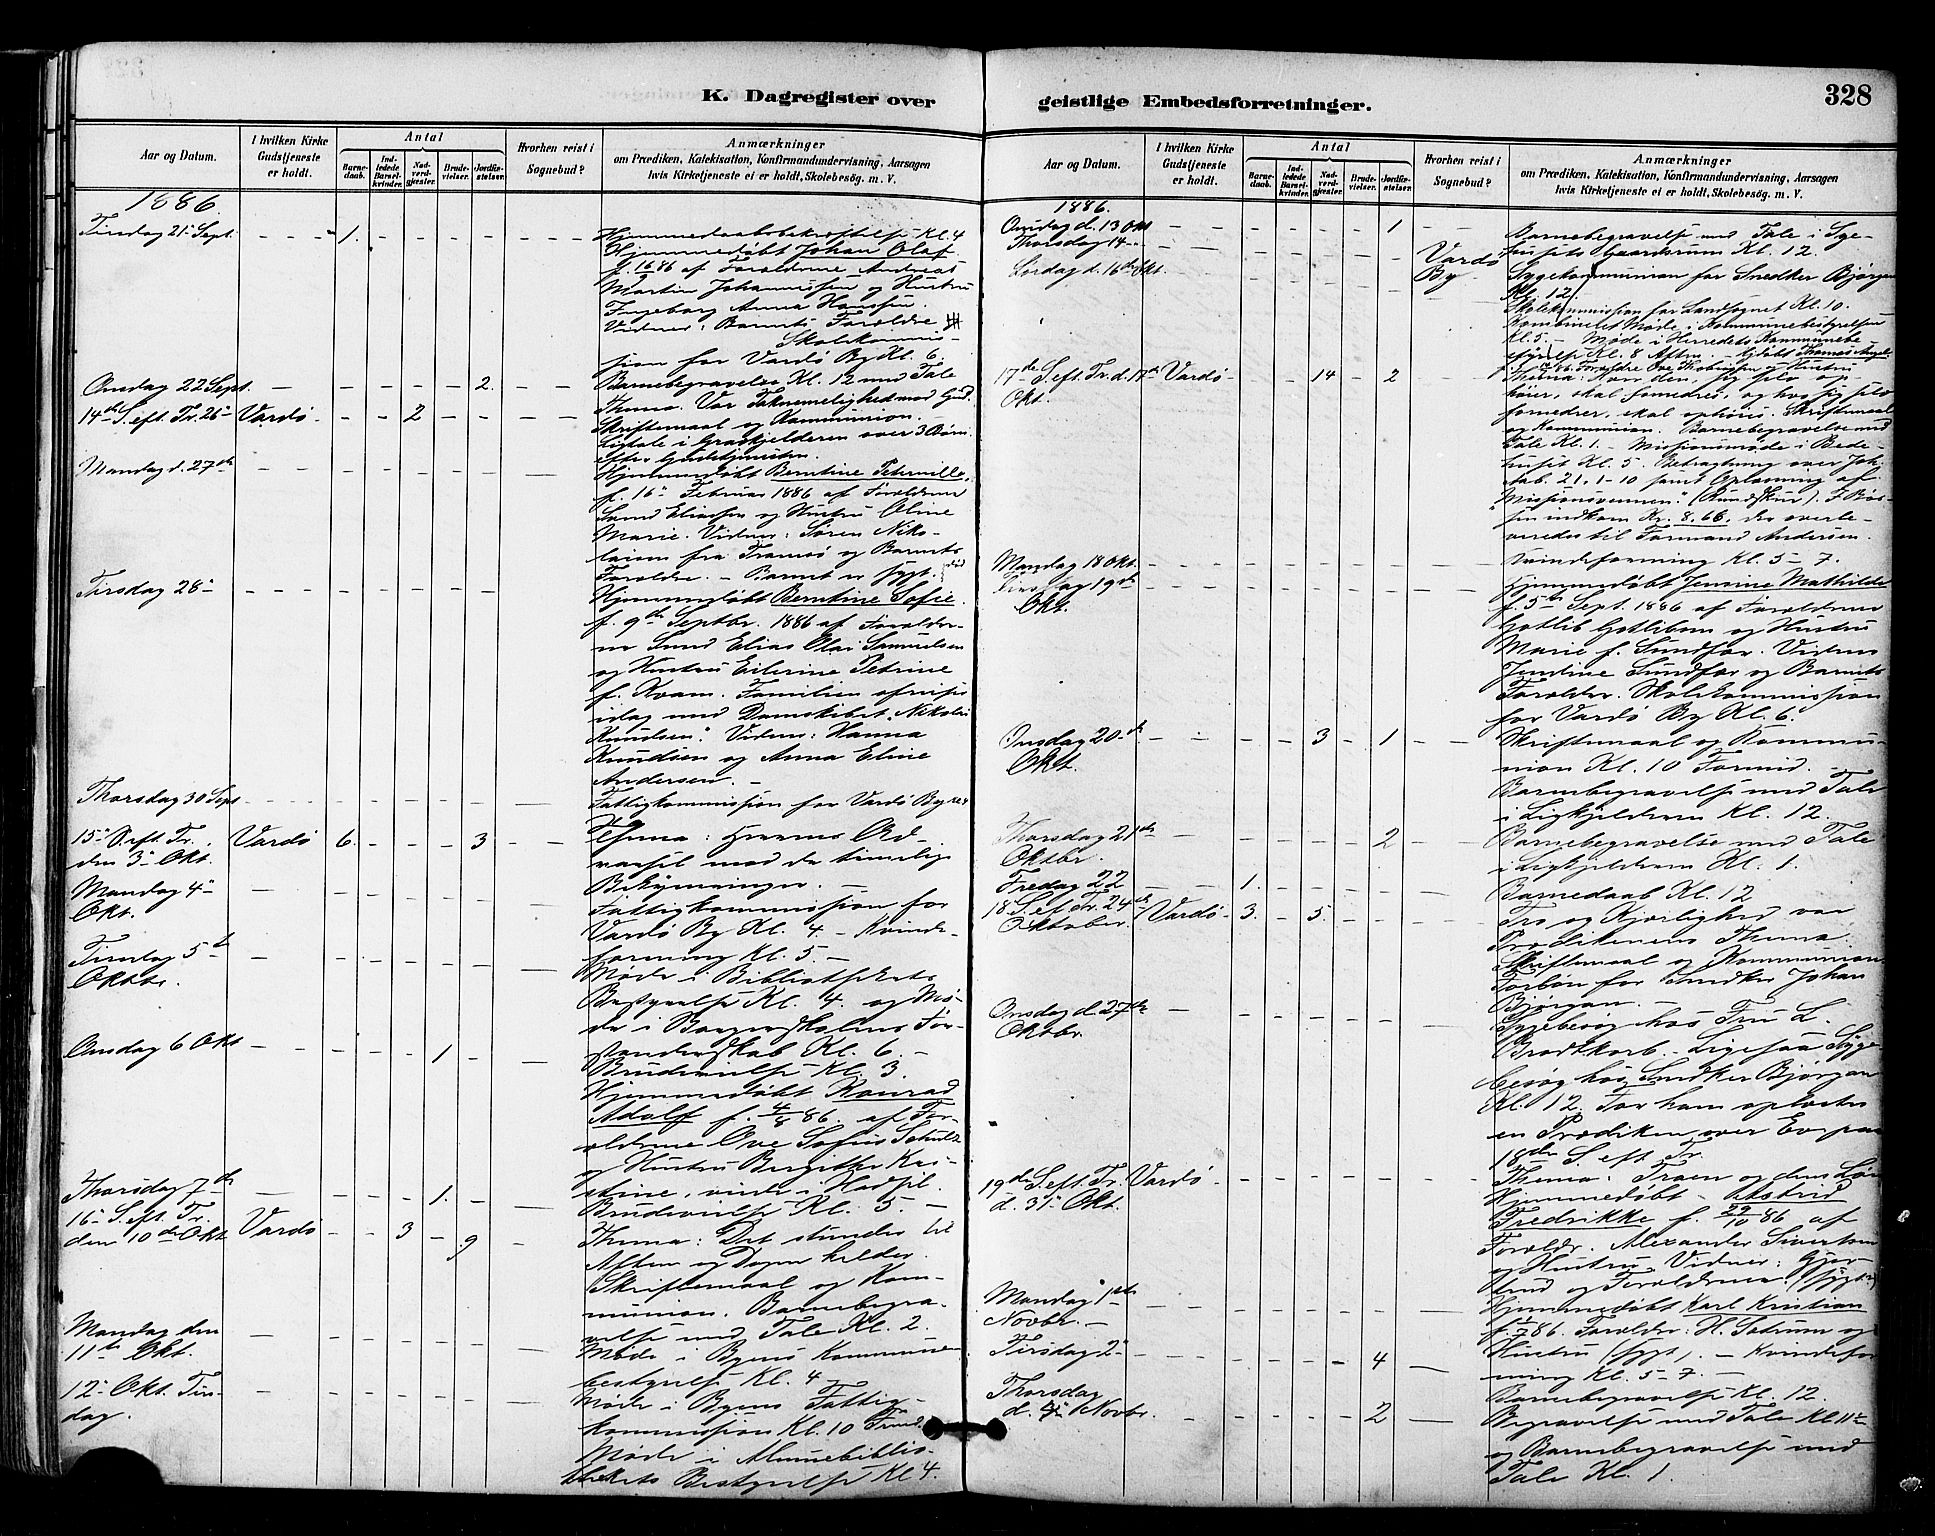 K. Dagregister over geistlige Embedsforretninger.
328
Aar og Datum.
I hvilken Kirke Gudstjeneste er holdt.
Antal
Barne-daab.
Ind-ledede Barsel-kvinder.
Nad-verd-gjester.
Brude-vielser.
Jordfæ-stelser.
Hvorhen reist i Sognebud?
Anmærkninger
om Prædiken, Katekisation, Konfirmandundervisning, Aarsagen
hvis Kirketjeneste ei er holdt, Skolebesøg. m. V.
1886
Tirsdag 21 Sept. 1.
Hjemmedaabsbekræftelse Kl. 4
Hjemmedøbt Johan Olaf
af Forældrene Andreas
Martin Johannessen og Hustru
Ingeborg Anna Hanssen.
Vidner: Barnets Forældre
Skolekommis-
sion for Vardö By Kl. 6.
Onsdag 22 Sept. 2.
Barnebegravelse Kl. 12 med Tale
14de S. eft. Tr. 26 Vardö 2
Thema: Vor Taknemelighed mod Gud.
Skriftemaal og Kommunion.
Ligtale i Gravkjelderen over 3 Børn
efter Gudstjenesten.
Mandag d. 27de
Hjemmedøbt Berntine Petrnille,
f. 16 Februar 1886 af Forældrene
Lund Eliassen og Hustru Oline
Marie. Vidner: Søren Niko-
laisen fra Tromsö og Barnets
Forældre. - Barnet er sygt.
Tirsdag 28
Hjemmedøbt Berntine Sofie.
f. 9de Septbr. 1886 af Forældre-
ne Lund Elias Olai Samuelsen
og Hustru Eilerine Petrine
f. Kvam. Familien afreiser
idag med Damskibet "Nikolai
Knudsen." Vidner: Hanna
Knudsen og Anna Eline
Andersen. -
Thorsdag 30 Sept
Fattigkommission for Vardö By Kl 4
15 S. eft. Tr. Vardö 6. 3
den 3 Okt.
Thema: Herrens Ad-
varsel mod de timelige
Bekymringer. -
Mandag 4
Okt.
Fattigkommission for
Vardö By Kl. 4. - Kvinde-
forening Kl. 5. -
Tirsdag 5t
Oktbr.
Møde i Bibliothekets
Bestyrelse Kl. 4. og Mø-
de i Borgerskolens For-
standerskab Kl. 6. -
Onsdag 6 Okt 1
Brudevielse Kl. 3.
Hjemmedøbt Konrad
Adolf f. 4/8 86. af For-
ældrene Ove Sofus Schult
og Hustru Bergitte Kri-
stine,
Thorsdag 7de 1.
Brudevielse Kl. 5. -
16 S. eft. Tr.
den 10de Okt Vardö 3 9
Thema: Det stunder til
Aften og Dagen helder.
Skriftemaal og Kom-
munion. Barnebegra-
velse med Tale Kl. 2.
Mandag den
11te Okt.
Møde i Byens Kommune-
bestyrelse Kl. 4
12 Okt. Tirs-
dag.
Møde i Byens Fattig-
kommission Kl. 10 Form.
Møde i Almuebiblio-
thekets Bestyrelse Kl 4.
Aar og Datum.
I hvilken Kirke Gudstjeneste er holdt.
Antal
Barne-daab.
Ind-ledede Barsel-kvinder.
Nad-verd-gjester.
Brude-vielser.
Jordfæ-stelser.
Hvorhen reist i Sognebud?
Anmærkninger
om Prædiken, Katekisation, Konfirmandundervisning, Aarsagen
hvis Kirketjeneste ei er holdt, Skolebesøg. m. V.
1886.
Onsdag d. 13 Okt 1
Barnebegravelse med Tale i Syge-
husets Gaardsrum Kl. 12.
Thorsdag 14 Vardö By
Sygekommunion for Snedker Bjørgan
Kl. 12.
Lørdag d. 16de Okt.
Skolekommission for Landsognet Kl. 10.
Kombineret Møde i Kommunebestyrelsen
Kl. 5. - Møde i Herredets Kommunebe
styrelse Kl. 8 Aften.
17de S. eft. Tr. d. 17de Vardö 14 2
Okt.
Thema: Hvo den, sig selv op-
høier, skal fornedres, og hvo sig selv
fornedrer, skal ophøies. Skriftemaal
og Kommunion. Barnebegravelse med
Tale Kl. 1. - Missionsmøde i Bede-
huset Kl. 5. Betragtning over Joh.
Aab. 21. 1-10 samt Oplæsning af
"Missionsvennen."
indkom Kr. 8.66, der overle-
veredes til Formand Andersen.
Mandag 18 Okt.
Kvindeforening Kl. 5-7.
Tirsdag 19de
Okt.
Hjemmedøbt Jensine Mathilde
f. 5te Sept. 1886 af Forældrene
Gotlib Gotlibsen og Hustru
Marie f. Sundfær. Vidner
Jentine Sundfær og Barnets
Forældre. Skolekommission
for Vardö By Kl. 6.
Onsdag 20de 3 1
Okt.
Skriftemaal og Kommu-
nion Kl. 10 Formid.
Barnebegravelse med Tale
i Ligkjelderen Kl. 12.
Thorsdag 21de 2
Oktbr.
Barnebegravelse med Tale
i Ligkjelderen Kl. 1.
Fredag 22 1.
Barnedaab Kl. 12
18. S. eft Tr. 24de Vardö 3. 5
Oktober.
Tro og Kjærlighed var
Prædikenens Thema.
Skriftemaal og Kommunion
Forbøn for Snedker Johan
Bjørgan. -
Onsdag d. 27de
Oktbr.
Sygebesøg hos Fru L.
Brodtkorb. - Ligesaa Syge
besøg hos Snedker Bjørgan
Kl. 12. For ham oplæstes
en Prædiken over Ev. paa
18de S. eft. Tr.
19de S. eft. Tr. Vardö
d. 31 Okt.
Thema: Troen og dens Løn
Hjemmedøbt Astrid
Fredrikke f. 29/10 86 af
Foreldr. Alexander Sivertsen
og Hustru. Vidner:
og Forældrene. (sygt)
Mandag 1ste
Novbr.
Hjemmedøbt Karl Kristian
Forældre: H. Sætrum og
Hustru (sygt). - Kvindefor
ning Kl. 5-7. -
Tirsdag 2 4
Barnebegravelse Kl. 12.
Thorsdag
d. 4 Novbr. 2
Begravelse med Tale Kl 11
og Barnebegravelse med
Tale Kl. 1.